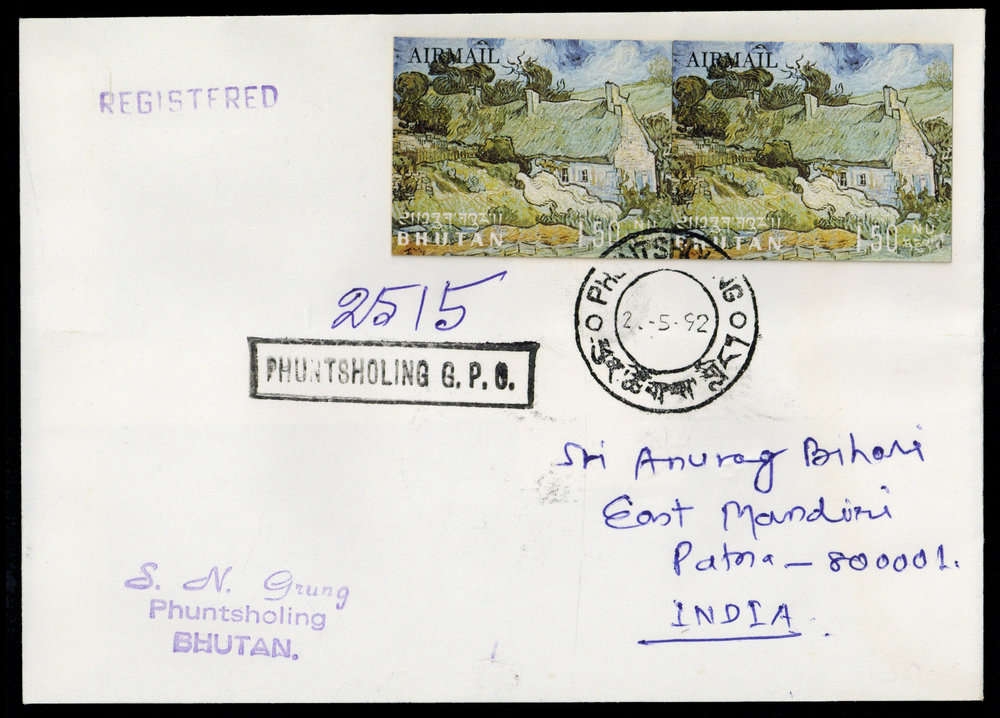 REGISTERED
AIRMAIL
AIRMAIL
1.50 NU
BHUTAN
1.50 NU
BHUTAN
PHUNTSHOLING
-5-92
2515
PHUNTSHOLING G. P. O.
Sri Anurag Bihari
East Mandiri
Patna - 800001.
INDIA
S. N. Grung
Phuntsholing
BHUTAN.